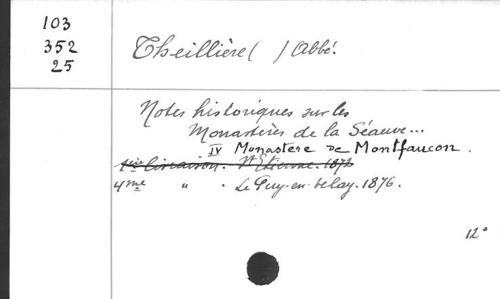 103
352
25
Theillière ( ) Abbé.
Notes historiques sur les
Monastères de la Séauve...
IV Monastere de Montfaucon.
1ère livraison. St Etienne. 1872
4me " . Le Puy-en-Velay. 1876.
12°